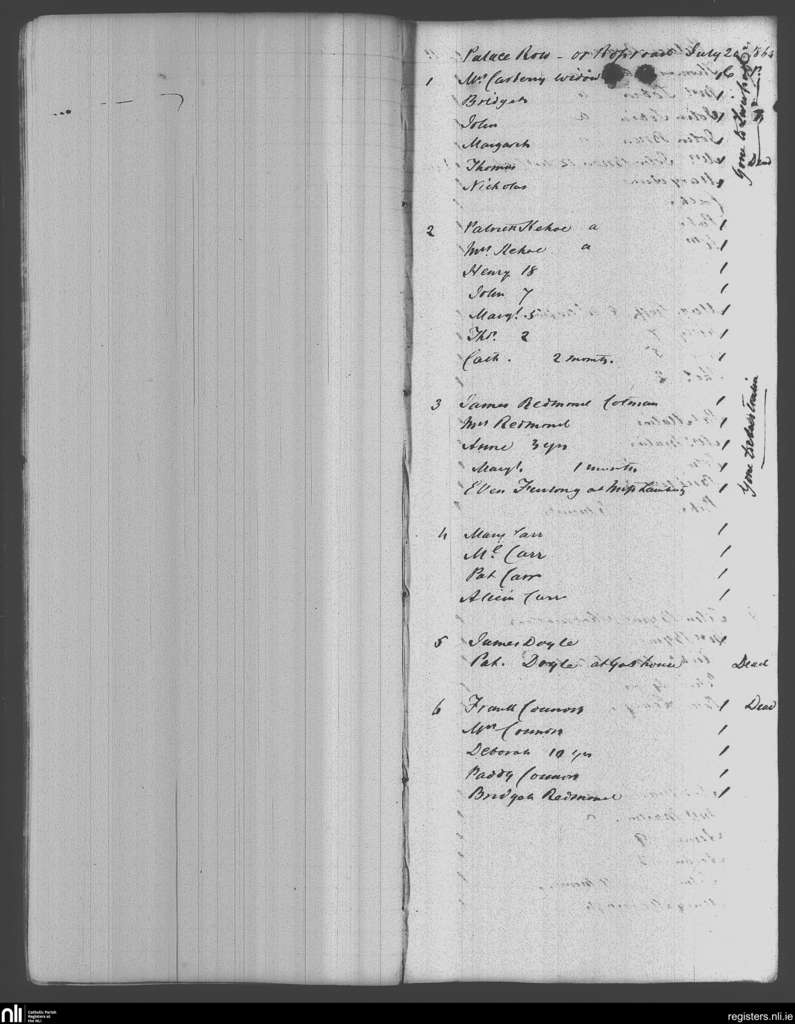 Palace Row - or Rope road July 186
1 Mrs Carberry widow 6
Bridget
John
Margaret
Thomas
Nicholas
Gone to
Dead
2 Patrick Kehoe a
Mrs Kehoe a
Henry 18
John 7
Margt. 5
Thos. 2
Cath. 2 months.
3 James Redmond
Mrs Redmond
Anne 3 yrs
Margt. 1 month
Ellen Furlong at Miss
Gone
4 Mary Carr
Ml Carr
Pat Carr
Alicia Carr
5 James Doyle
Pat. Doyle at Gas house Dead
6 Frank Connors Dead
Mrs Connors
Deborah 10 yrs
Paddy Connors
Bridget Redmond
nli Catholic Parish
Registers at
the NLI
registers.nli.ie